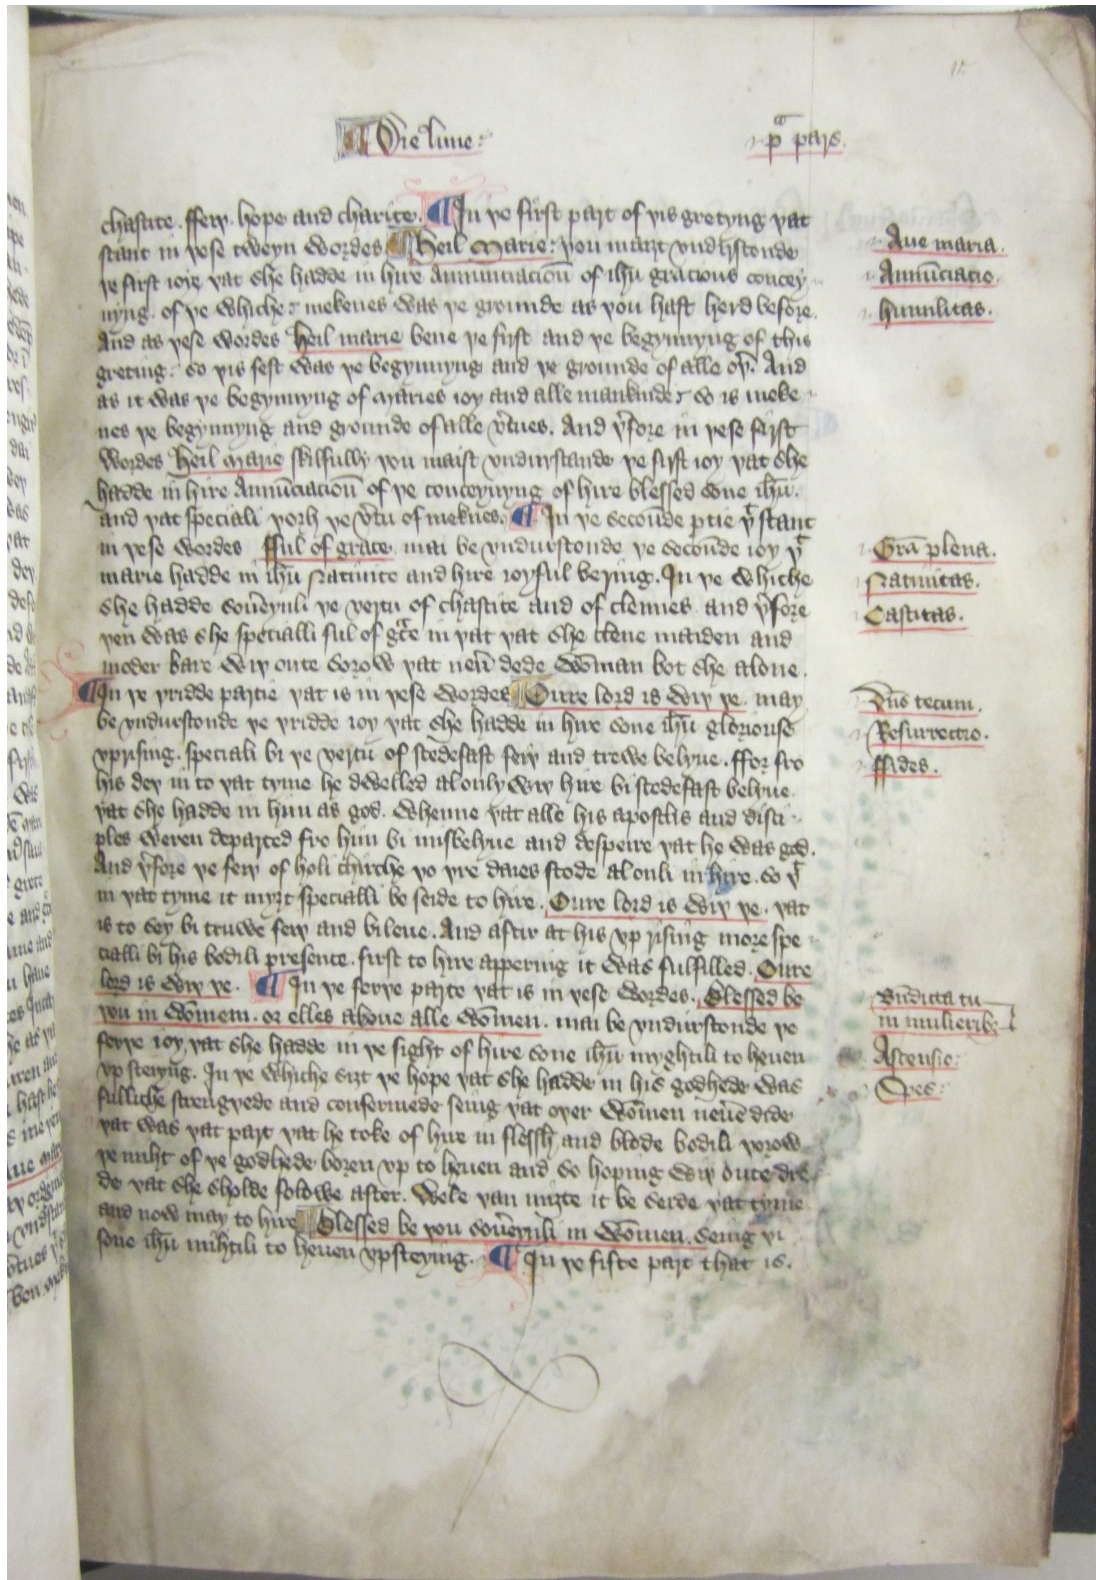 ¶ Die lune:
pª pars.
chastite. ffey. hope and charite. ¶ In ye first part of yis gretyng yat
stant in yese tweyn wordes ¶ Heil Marie: you maizt vndirstonde
ye first ioye yat she hadde in hire Annunciacioū of ihū gracious concey
uyng. of ye whiche: mekenes was ye grounde as you hast herd before.
And as yese wordes heil marie bene ye first and ye begynnyng of this
greting: so yis fest was ye begynnyng and ye grounde of alle oyr̄. And
as it was ye begynnyng of Maries ioy and alle mankinde: so is meke
nes ye begynnyng and grounde of alle v̄tues. And ȳfore in yese first
wordes heil marie skilfully you maist vndirstande ye first ioy yat she
hadde in hire Annūciacioū of ye conceyuyng of hire blessed sone ihū.
and yat speciali yorh ye v̄tu of meknes. ¶ In ye secoūde ptie yͭ stant
in yese wordes fful of grace. mai be vndurstonde ye secoūde ioy yͭ
marie hadde in ihū Natiuite and hire ioyful bering. In ye whiche
she hadde sou̅eynli ye vertu of chastite and of clennes and ȳfore
yen was she specialli ful of gͣce in yat yat she clene maiden and
moder bare wiy oute sorow yat neu̅ dede wōman bot she alone.
¶ In ye yridde partie yat is in yese wordes ¶ Oure lord is wiy ye. may
be vndurstonde ye yridde ioy yat she hadde in hire sone ihū gloriouse
vprising. speciali bi ye vertu of stedefast fey and trewe belyue. ffor fro
his dey in to yat tyme he dwelled al only wiy hire bi stedefast belyue
yat she hadde in him as god. Whenne yat alle his apostlis and disci
ples weren departed fro him bi misbelyue and despeire yat he was god.
And ȳfore ye fey of holi chirche yo yre daies stode al onli in hire. so yͭ
in yat tyme it myzt specialli be seide to hire. Oure lord is wiy ye. yat
is to sey bi truwe fey and bileue. And aftir at his vp rising more spe
cialli bi his bodili presence. first to hire appering it was fulfilled. Oure
lord is wiy ye. ¶ In ye ferye parte yat is in yese wordes. Blessed be
you in wōmen. or elles aboue alle wōmen. mai be vndurstonde ye
ferye ioy, yat she hadde in ye sight of hire sone ihū myghtili to heuen
vp steiyng. In ye whiche sizt ye hope yat she hadde in his godhede was
fulliche strengyede and confermede seing yat oyer wōmen neu̅e dide
yat was yat part yat he toke of hire in flessh and blode bodili yorow
ye miht of ye godhede boren vp to heuen and so hoping wiy oute dre
de yat she sholde folowe after. Wele yan mizte it be seide yat tyme
and now may to hire ¶ Blessed be you sou̅eynli in wōmen. seing yi
sone ihū mihtili to heuen vpsteying. ¶ In ye fifte part that is.
Aue maria.
Annūciatio.
humilitas.
Grā plena.
Natiuitas.
Castitas.
Dn̄s tecum.
Resurrectio.
ffides.
Bn̄dicta tu
in mulierib;
Ascensio:
Spes: